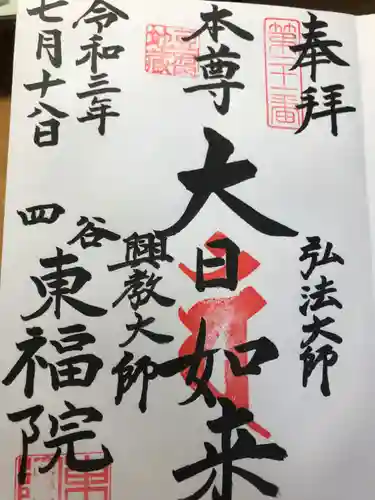 奉拝
第二十一番
弘法大師
本尊
大日如来
興教大師
令和三年
七月十八日
四谷
東福院